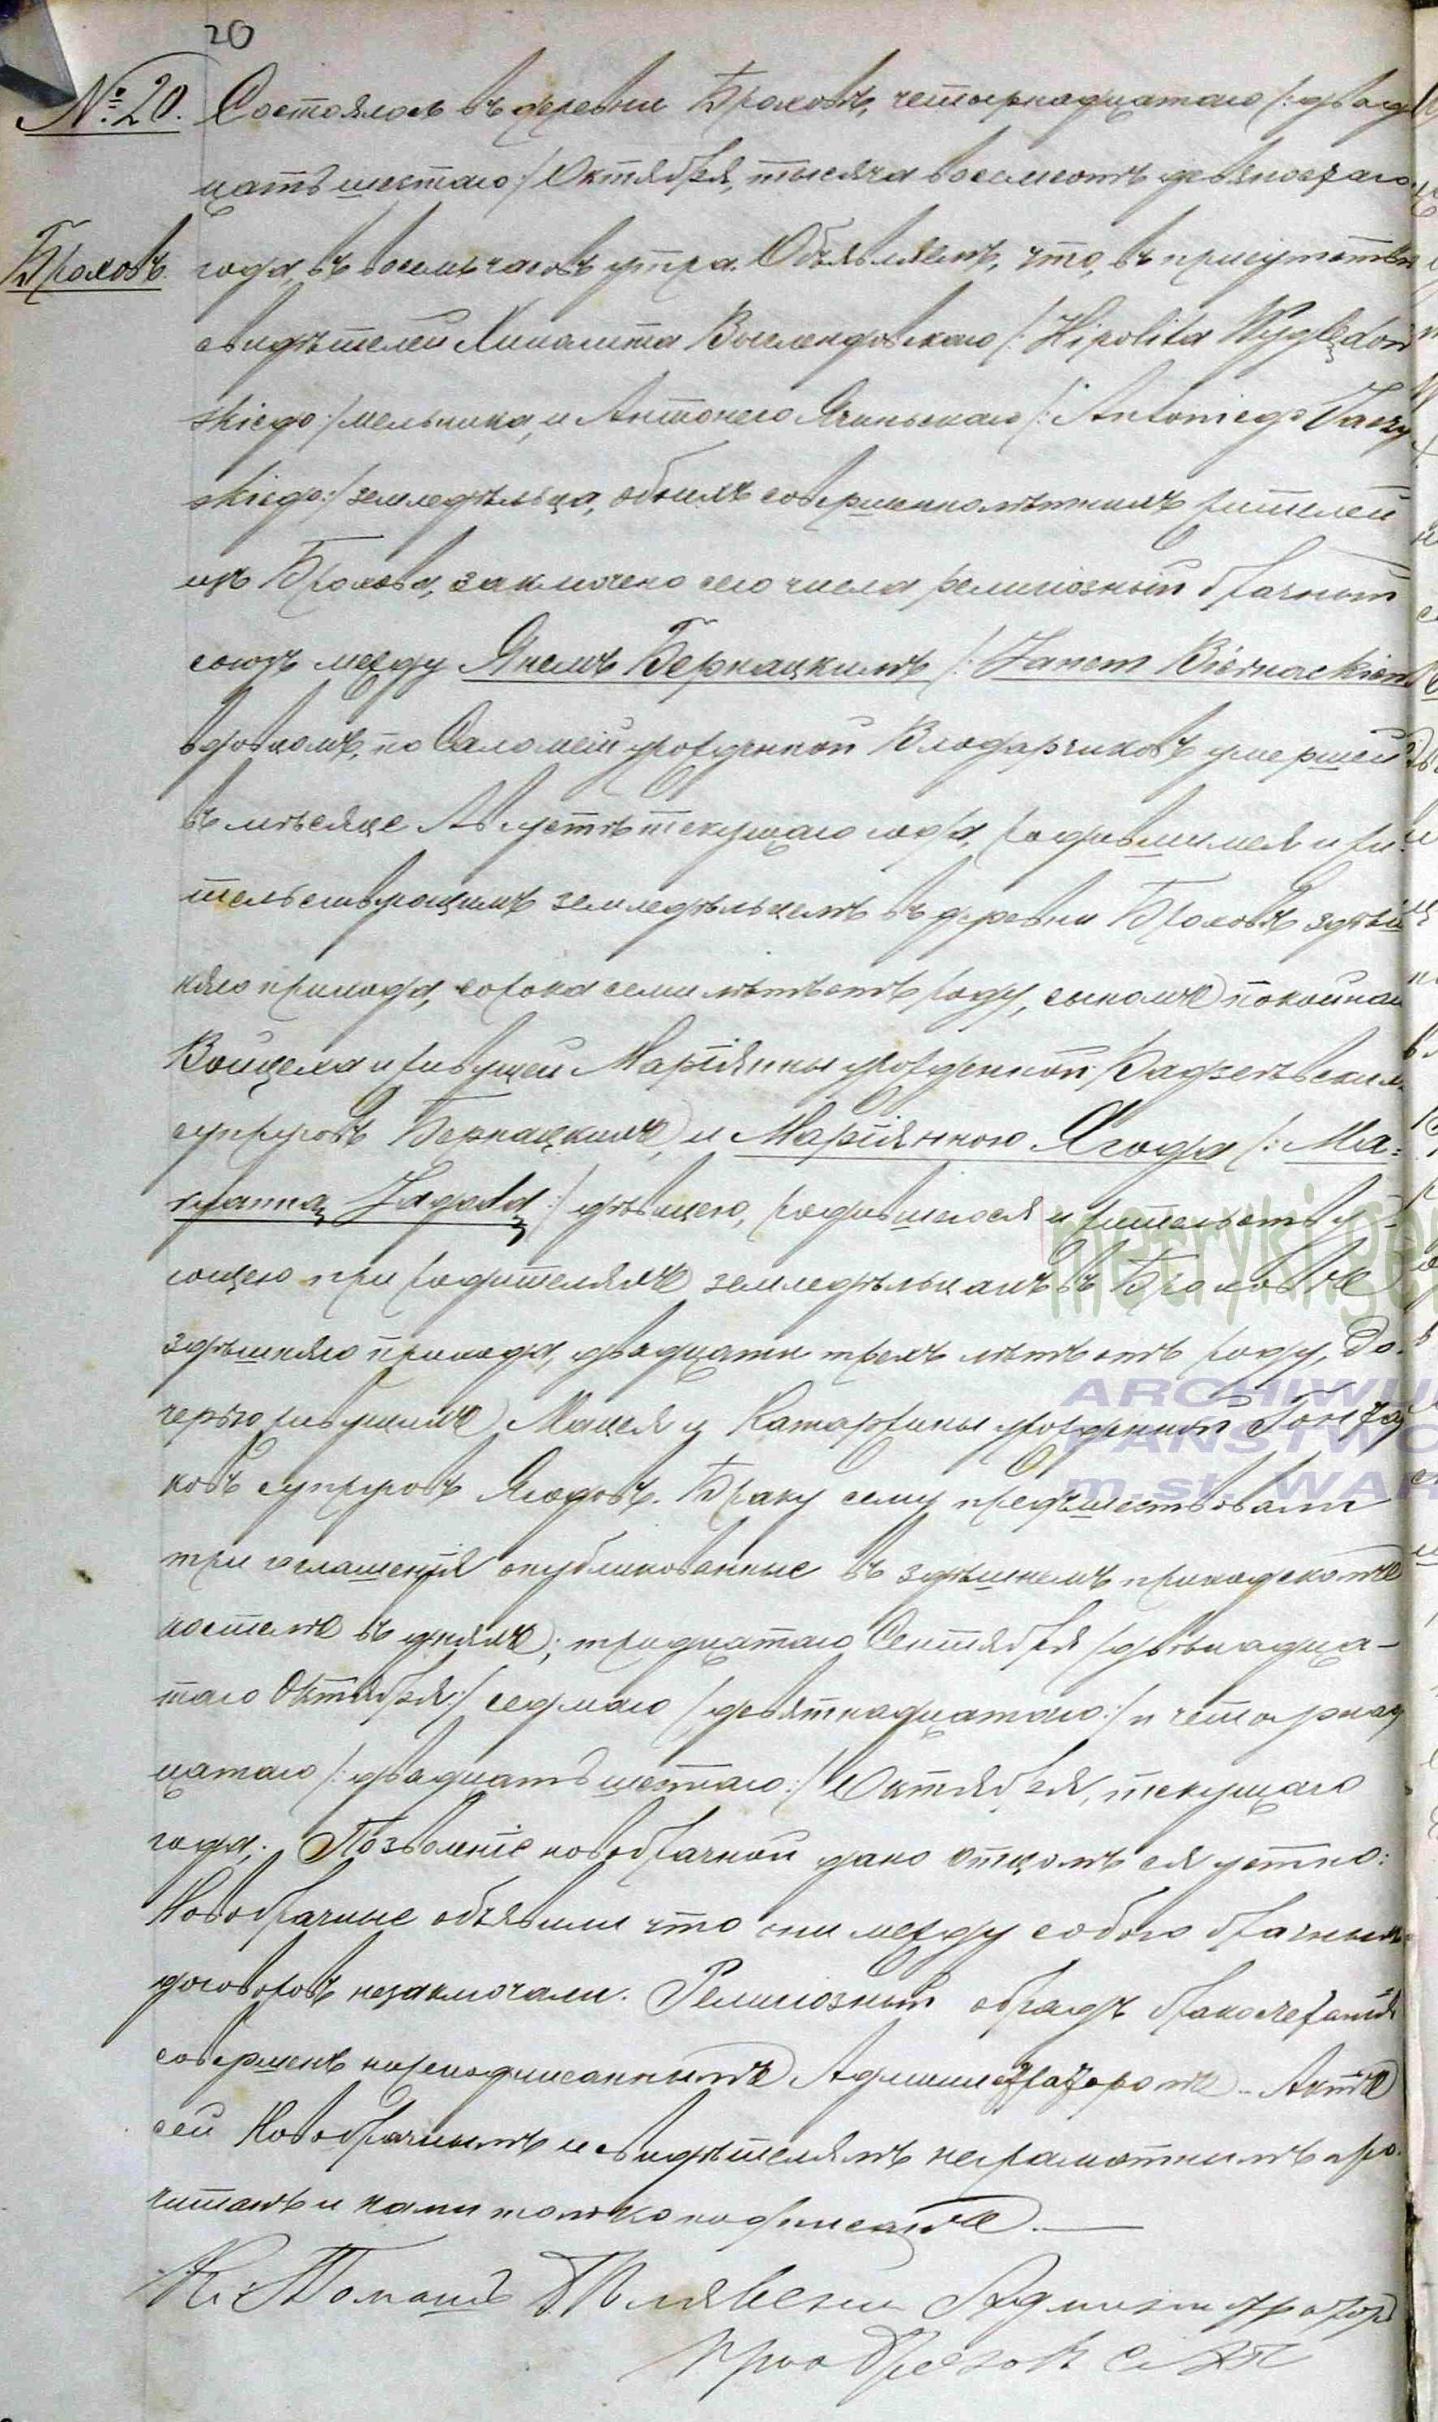 20
№ 20. Состоялось въ деревни Броховъ, четырнадцатаго /: двад
цать шестаго :/ Октября, тысяча восемсотъ девяностаго
Броховъ. года, въ восемь часовъ утра. Объявляемъ, что, въ присутствіи
свидѣтелей Хиполита Выглендовскаго /: Hipolita Wyględow
skiego :/ мельника, и Антонего Ячиньскаго /: Antoniego Jaczy
skiego :/ земледѣльца, обоихъ совершеннолѣтнихъ жителей
изъ Брохова, заключено сего числа религіозный брачный
союзъ между Янемъ Бернацкимъ /: Janem Biernackiem
вдовцомъ, по Саломеи урожденной Влодарчиковъ умершей
въ мѣсяце Августѣ текущаго года, родившимся и жи
тельствующимъ земледѣльцемъ въ деревни Броховѣ здѣш
няго прихода, сорока семи лѣтъ отъ роду, сыномъ покойнаго
Войцеха и живущей Маріянны урожденной
супруговъ Бернацкихъ, и Маріянною Ягода /: Ma=
ryanną Jagodą :/ дѣвицею, родившеюся и жительству-
ющею при родителяхъ земледѣльцахъ въ Броховѣ
здѣшняго прихода, двадцати трехъ лѣтъ отъ роду, до
черью живущихъ Мацея и Катаржины урожденной
ковъ супруговъ Ягодовъ. Браку сему предшествовали
три оглашенія опубликованные въ здѣшнемъ приходскомъ
костелѣ въ дняхъ; тридцатаго Сентября /: двѣнадца-
таго Октября :/ седмаго /: девятнадцатаго :/ и четырнад
цатаго /: двадцать шестаго :/ Октября, текущаго
года. Позволеніе новобрачной дано отцомъ ея устно:
Новобрачные объявили что они между собою брачныхъ
договоровъ незаключали. Религіозный обрядъ бракосочетанія
совершенъ нижеподписаннымъ Администраторомъ. Актъ
сей Новобрачнымъ и свидѣтелямъ неграмотнымъ про
читанъ и нами только подписанъ. —
Кс. Томашъ Администраторъ
metryki.gen
ARCHIWUM
PAŃSTWO
m.st. WAR